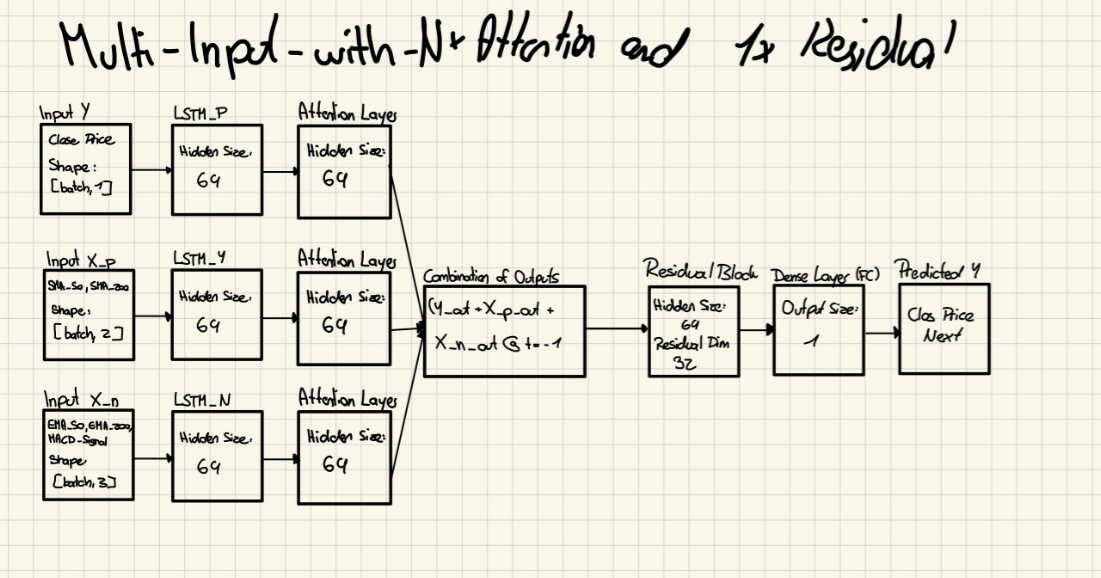 Multi-Input-with-Nx Attention and 1x Residual
Input Y
Close Price
Shape:
[batch, 1]
LSTM_P
Hidden Size:
64
Attention Layer
Hidden Size:
64
Input X_p
SMA_50, SMA_200
Shape:
[batch, 2]
LSTM_Y
Hidden Size:
64
Attention Layer
Hidden Size:
64
Input X_n
EMA_50, EMA_200,
MACD_Signal
Shape
[batch, 3]
LSTM_N
Hidden Size:
64
Attention Layer
Hidden Size:
64
Combination of Outputs
(Y_out + X_p_out +
X_n_out @ t=-1
Residual Block
Hidden Size:
64
Residual Dim
32
Dense Layer (FC)
Output Size:
1
Predicted Y
Clos Price
Next